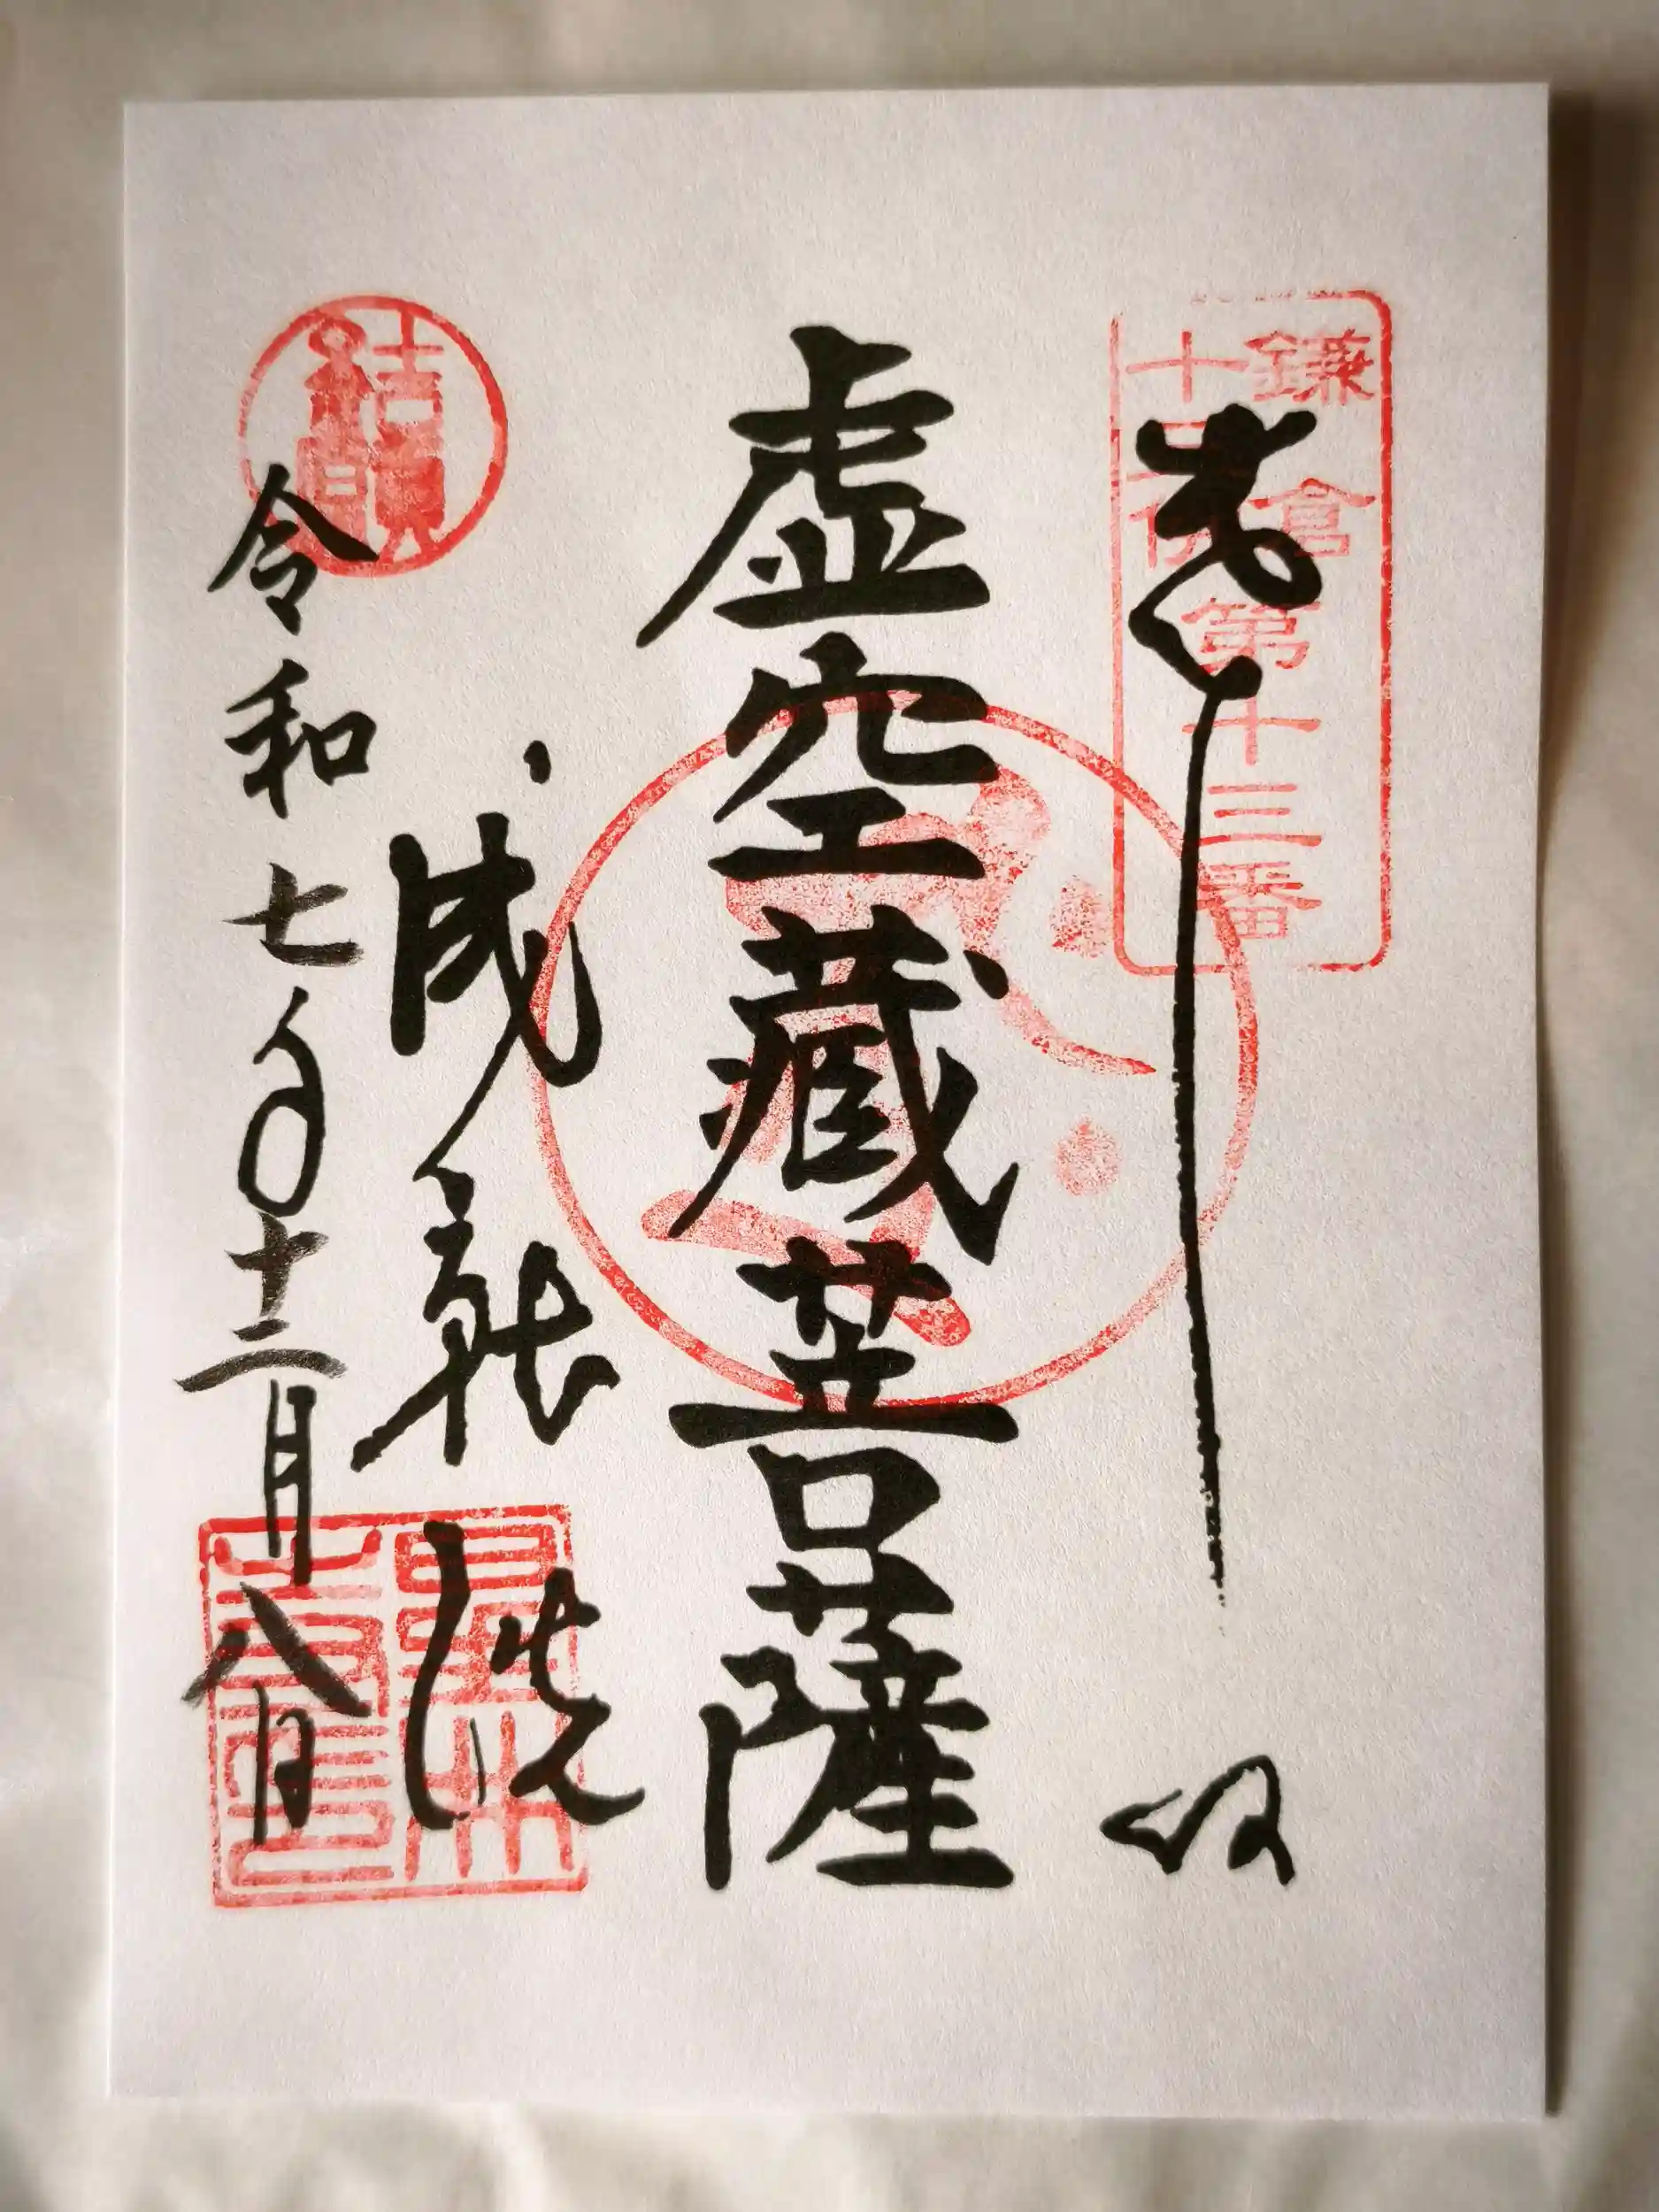 鎌倉
十三仏
第十三番
奉拝
虚空藏菩薩
成就院
結願
令和七年十二月八日